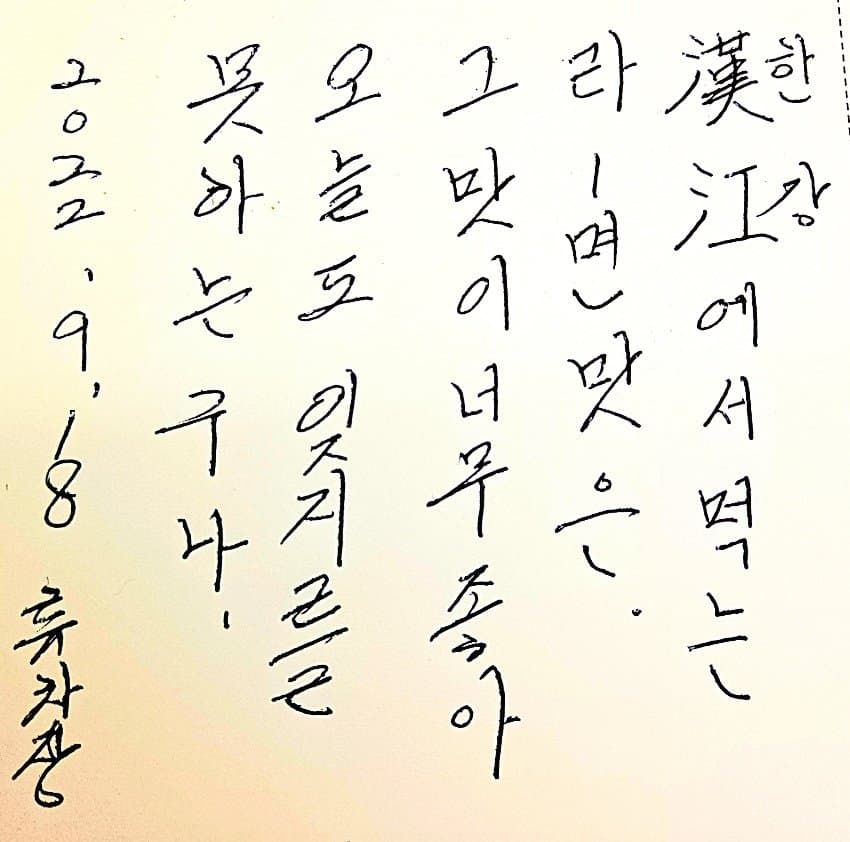 漢한江강에서 먹는
라ー면맛은.
그 맛이 너무 좋아
오늘도 잊지를
못하는구나.
2022.9.18 류차장